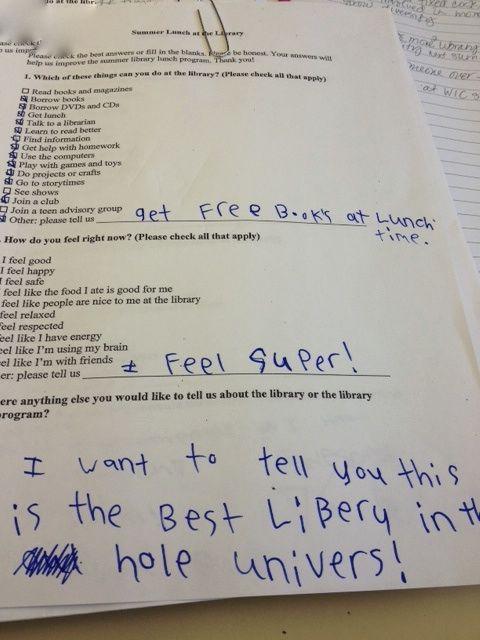 Summer Lunch at the Library
Please check the best answers or fill in the blanks. Please be honest. Your answers will
help us improve the summer library lunch program. Thank you!
1. Which of these things can you do at the library? (Please check all that apply)
Read books and magazines
Borrow books
Borrow DVDs and CDs
Get lunch
Talk to a librarian
Learn to read better
Find information
Get help with homework
Use the computers
Play with games and toys
Do projects or crafts
Go to storytimes
See shows
Join a club
Join a teen advisory group
Other: please tell us get Free Book's at Lunch
time.
How do you feel right now? (Please check all that apply)
I feel good
I feel happy
I feel safe
feel like the food I ate is good for me
feel like people are nice to me at the library
feel relaxed
feel respected
eel like I have energy
eel like I'm using my brain
eel like I'm with friends
er: please tell us I Feel super!
ere anything else you would like to tell us about the library or the library
rogram?
I want to tell you this
is the Best LiBery in th
hole univers!